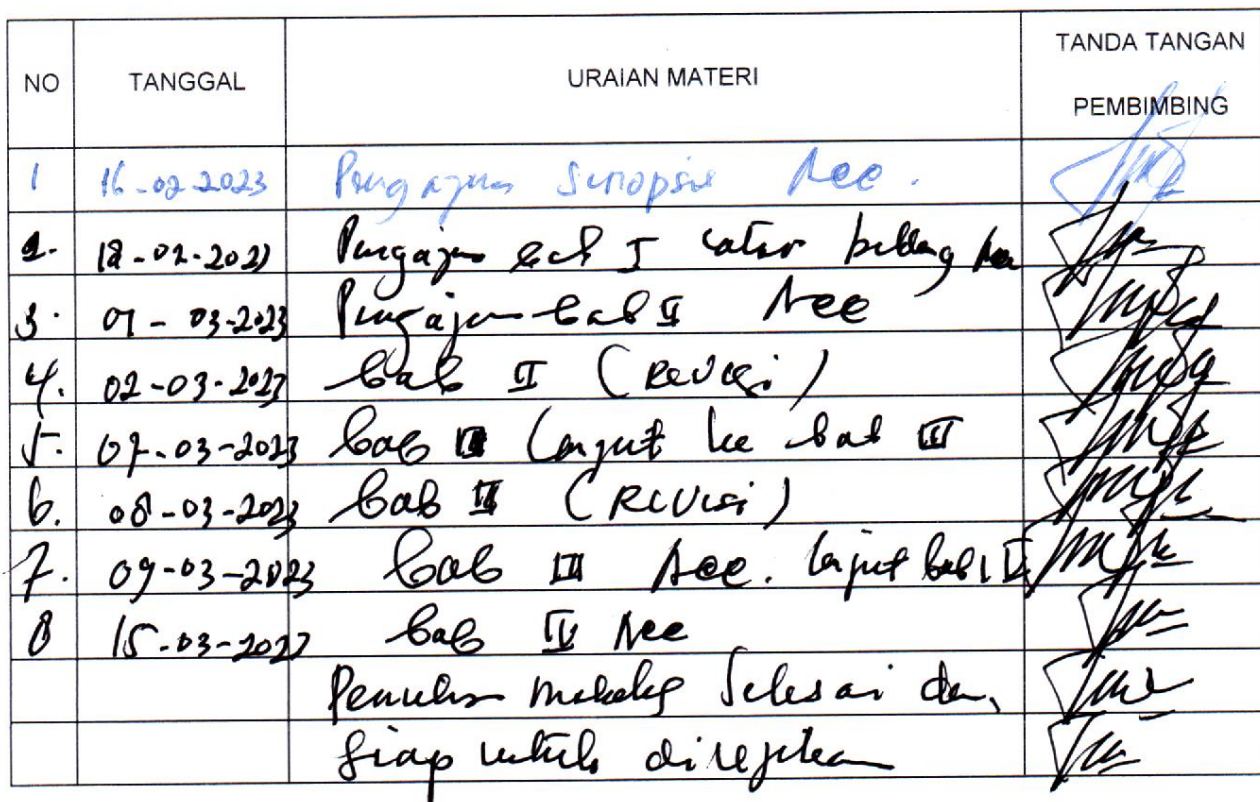 NO TANGGAL URAIAN MATERI TANDA TANGAN PEMBIMBING
1 16-02-2023 Pengajuan Sinopsis Acc.
2. 18-02-2023 Pengajuan bab I latar belakang Acc
3. 01-03-2023 Pengajuan bab II Acc
4. 02-03-2023 bab II (Revisi)
5. 07-03-2023 bab lanjut ke bab III
6. 08-03-2023 bab III (Revisi)
7. 09-03-2023 bab III Acc. lanjut bab IV
8 15-03-2023 bab IV Acc
Penulisan makalah Selesai dan,
Siap untuk